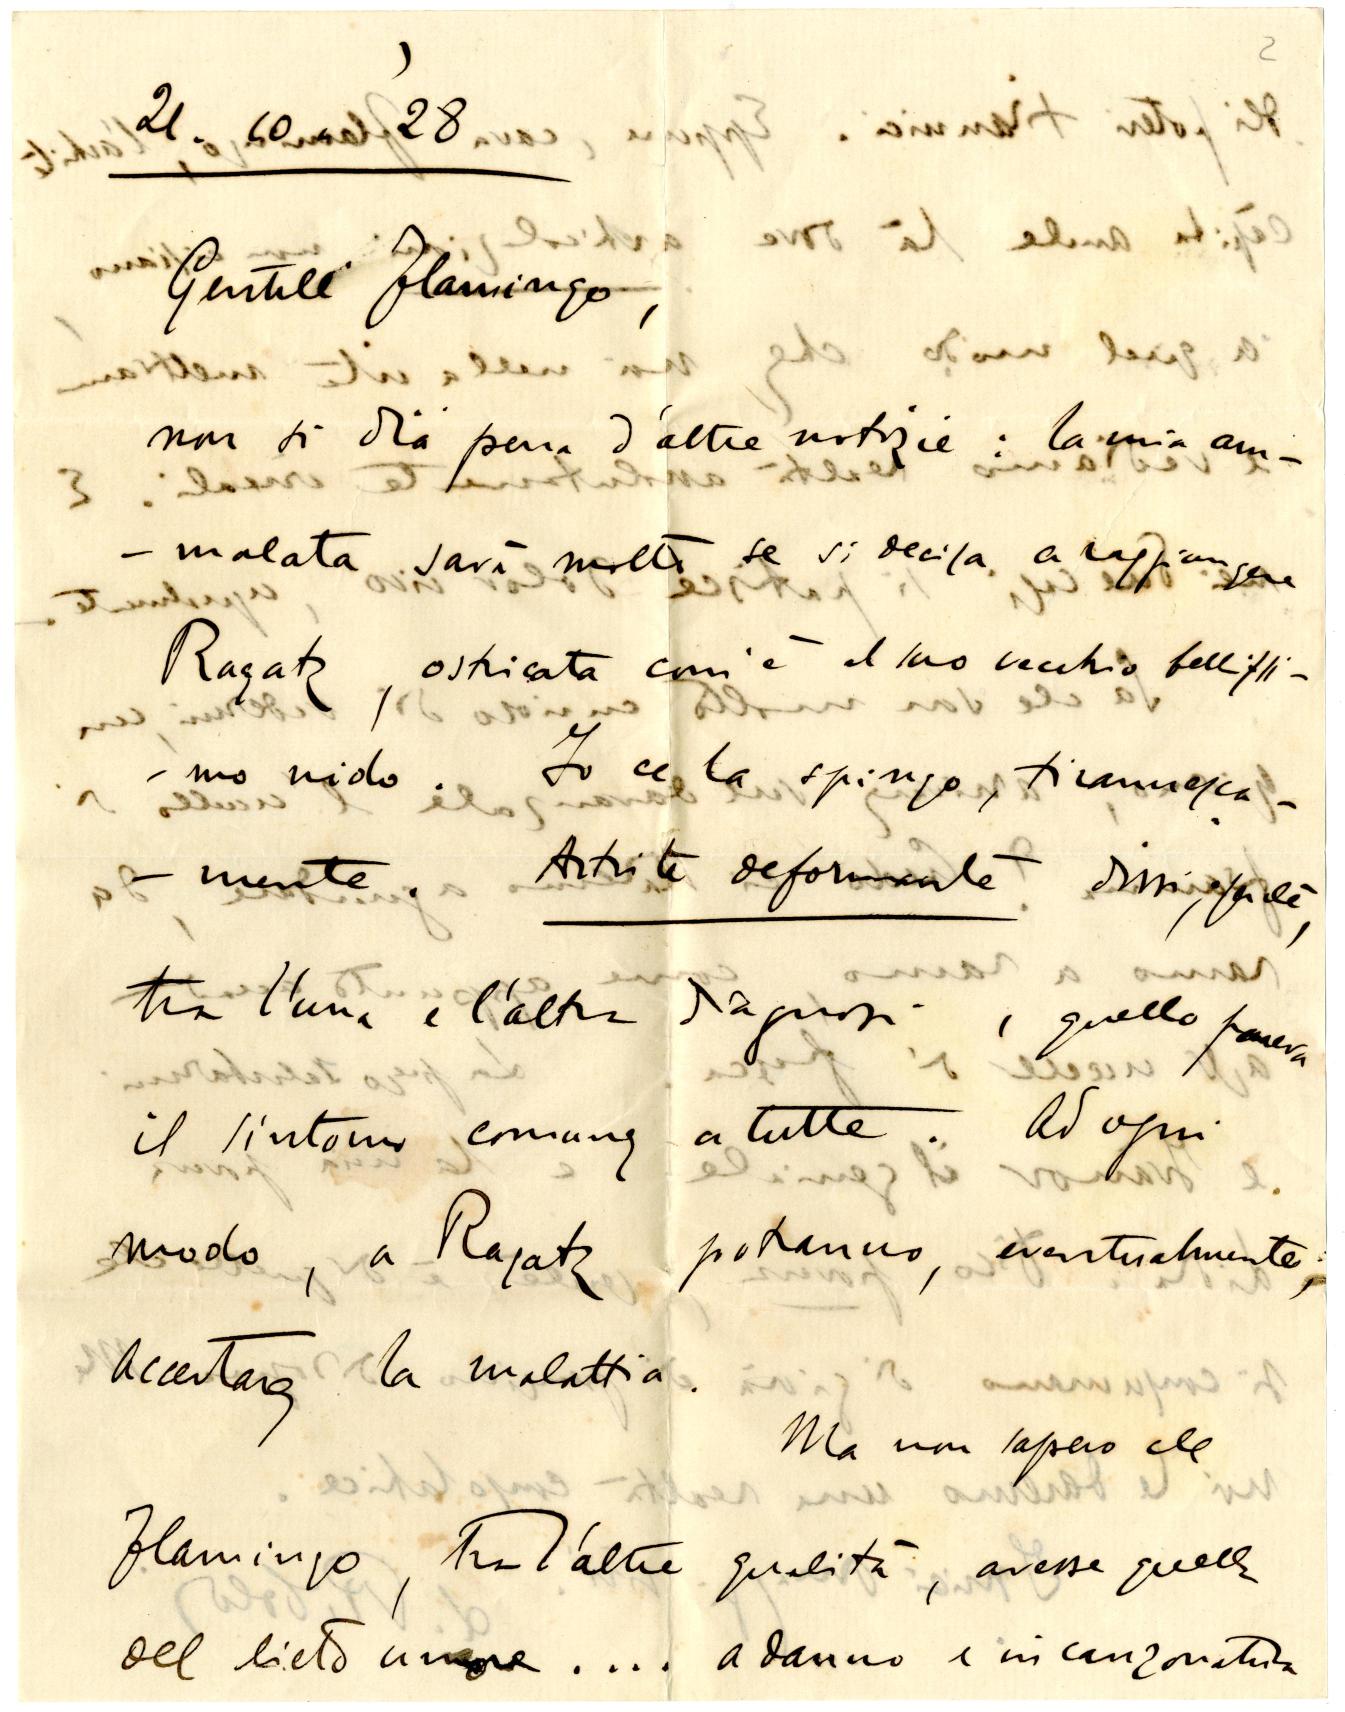 21. 10 '28
Gentile Flamingo,
non si dia pena d'altre notizie: la mia am-
-malata sarà molto se si decisa a raggiungere
Ragatz, ostricata com'è al suo vecchio bellissi-
-mo nido. Io ce la spingo, tirannesca-
-mente. Artrite deformante dissi,
tra l'una e l'altra diagnosi, quello pareva
il sintomo comune a tutte. Ad ogni
modo, a Ragatz potranno, eventualmente,
accertare la malattia.
Ma non sapevo che
Flamingo, tra l'altre qualità, avesse quella
del lieto umore .... a danno e in canzonatura